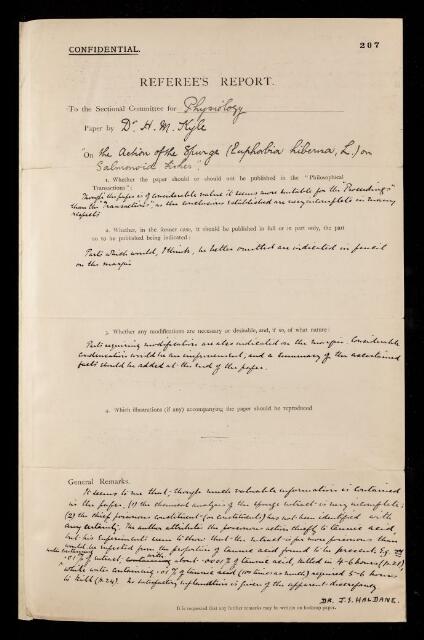 CONFIDENTIAL.
207
REFEREE'S REPORT.
To the Sectional Committee for Physiology
Paper by Dr. H. M. Kyle
"On the Action of the Spurge (Euphorbia hiberna, L.) on
Salmonoid Fishes"
1. Whether the paper should or should not be published in the "Philosophical
Transactions":
Though the paper is of considerable value it seems more suitable for the "Proceedings"
than the "Transactions", as the conclusions established are very incomplete in many
respects
2. Whether, in the former case, it should be published in full or in part only, the part
so to be published being indicated:
Parts which would, I think, be better omitted are indicated in pencil
on the margin
3. Whether any modifications are necessary or desirable, and, if so, of what nature:
Parts requiring modification are also indicated on the margin. Considerable
condensation would be an improvement, and a summary of the ascertained
facts should be added at the end of the paper.
4. Which illustrations (if any) accompanying the paper should be reproduced
General Remarks.
It seems to me that, though much valuable information is contained
in the paper, (1) the chemical analysis of the spurge extract is very incomplete;
(2) the chief poisonous constituent (or constituents) has not been identified with
any certainty. The author attributes the poisonous action chiefly to tannic acid,
but his experiments seem to show that the extract is far more poisonous than
would be expected from the proportion of tannic acid found to be present. Eg.
water containing .01% of extract, with about .0001% of tannic acid, killed in 4-6 hours (p.21),
while water containing .01% of tannic acid (100 times as much) required 5-6 hours
to kill (p.24). No satisfactory explanation is given of the apparent discrepancy
DR. J. S. HALDANE.
It is requested that any further remarks may be written on foolscap paper.